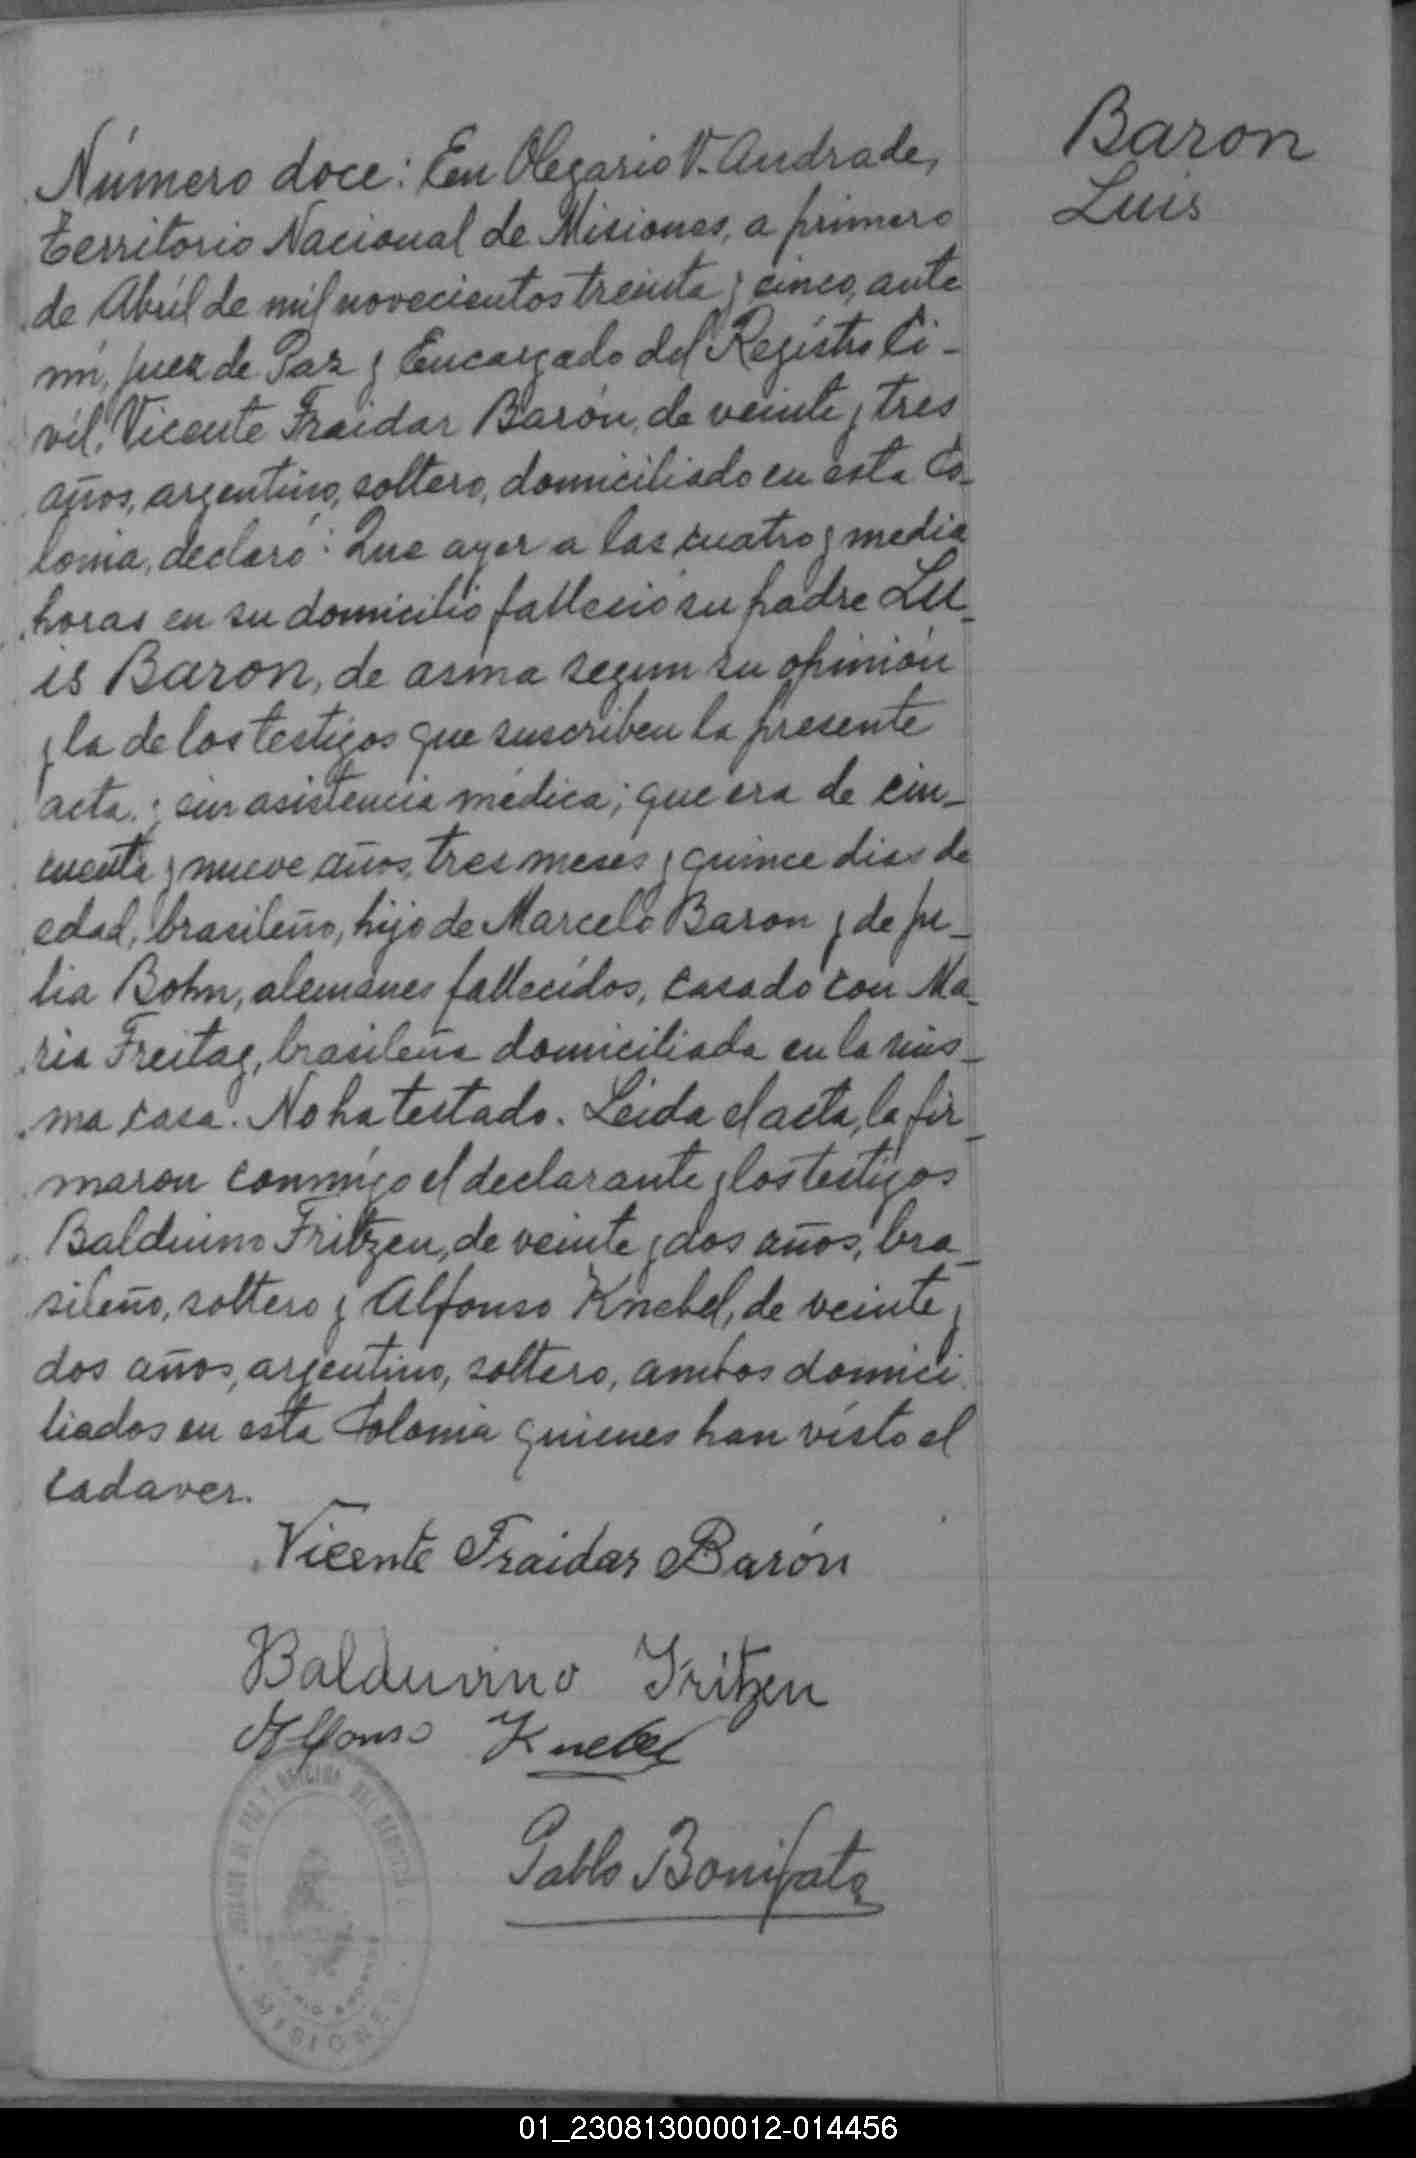 Baron
Luis
Número doce: En Olegario V. Andrade,
territorio Nacional de Misiones, a primero
de Abríl de mil novecientos treinta y cinco, ante
mi, juez de Paz y Encargado del Regístro Ci-
víl, Vicente Fraidar Barón, de veinte y tres
años, argentino, soltero, domiciliado en esta Co-
lonia, declaró: Que ayer a las cuatro y media
horas en su domicilio falleció su padre Lu-
is Baron, de asma segun su opinión
y la de los testigos que suscriben la presente
acta y sin asistencia médica; que era de cin-
cuenta y nueve años, tres meses y quince dias de
edad, brasileño, hijo de Marcelo Baron y de ju-
lia Bohn, alemanes fallecídos, casado con Ma-
ria Freitag, brasileña domiciliada en la mis-
ma casa. No ha testado. Leida el acta, la fir-
maron conmígo el declarante y los testigos
Balduino Fritzen, de veinte y dos años, bra-
sileño, soltero y Alfonso Knebel, de veinte y
dos años, argentino, soltero, ambos domici-
liados en esta Colonia quienes han vísto el
cadaver.
Vicente Fraidar Barón
Balduvino Fritzen
Alfonso Knebel
Pablo Bonifato
MISIONES
01_230813000012-014456